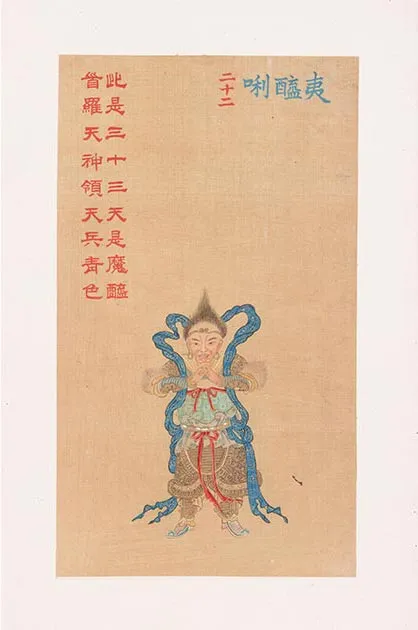 夷醯唎
二十二
此是三十三天是魔醯
首羅天神領天兵青色